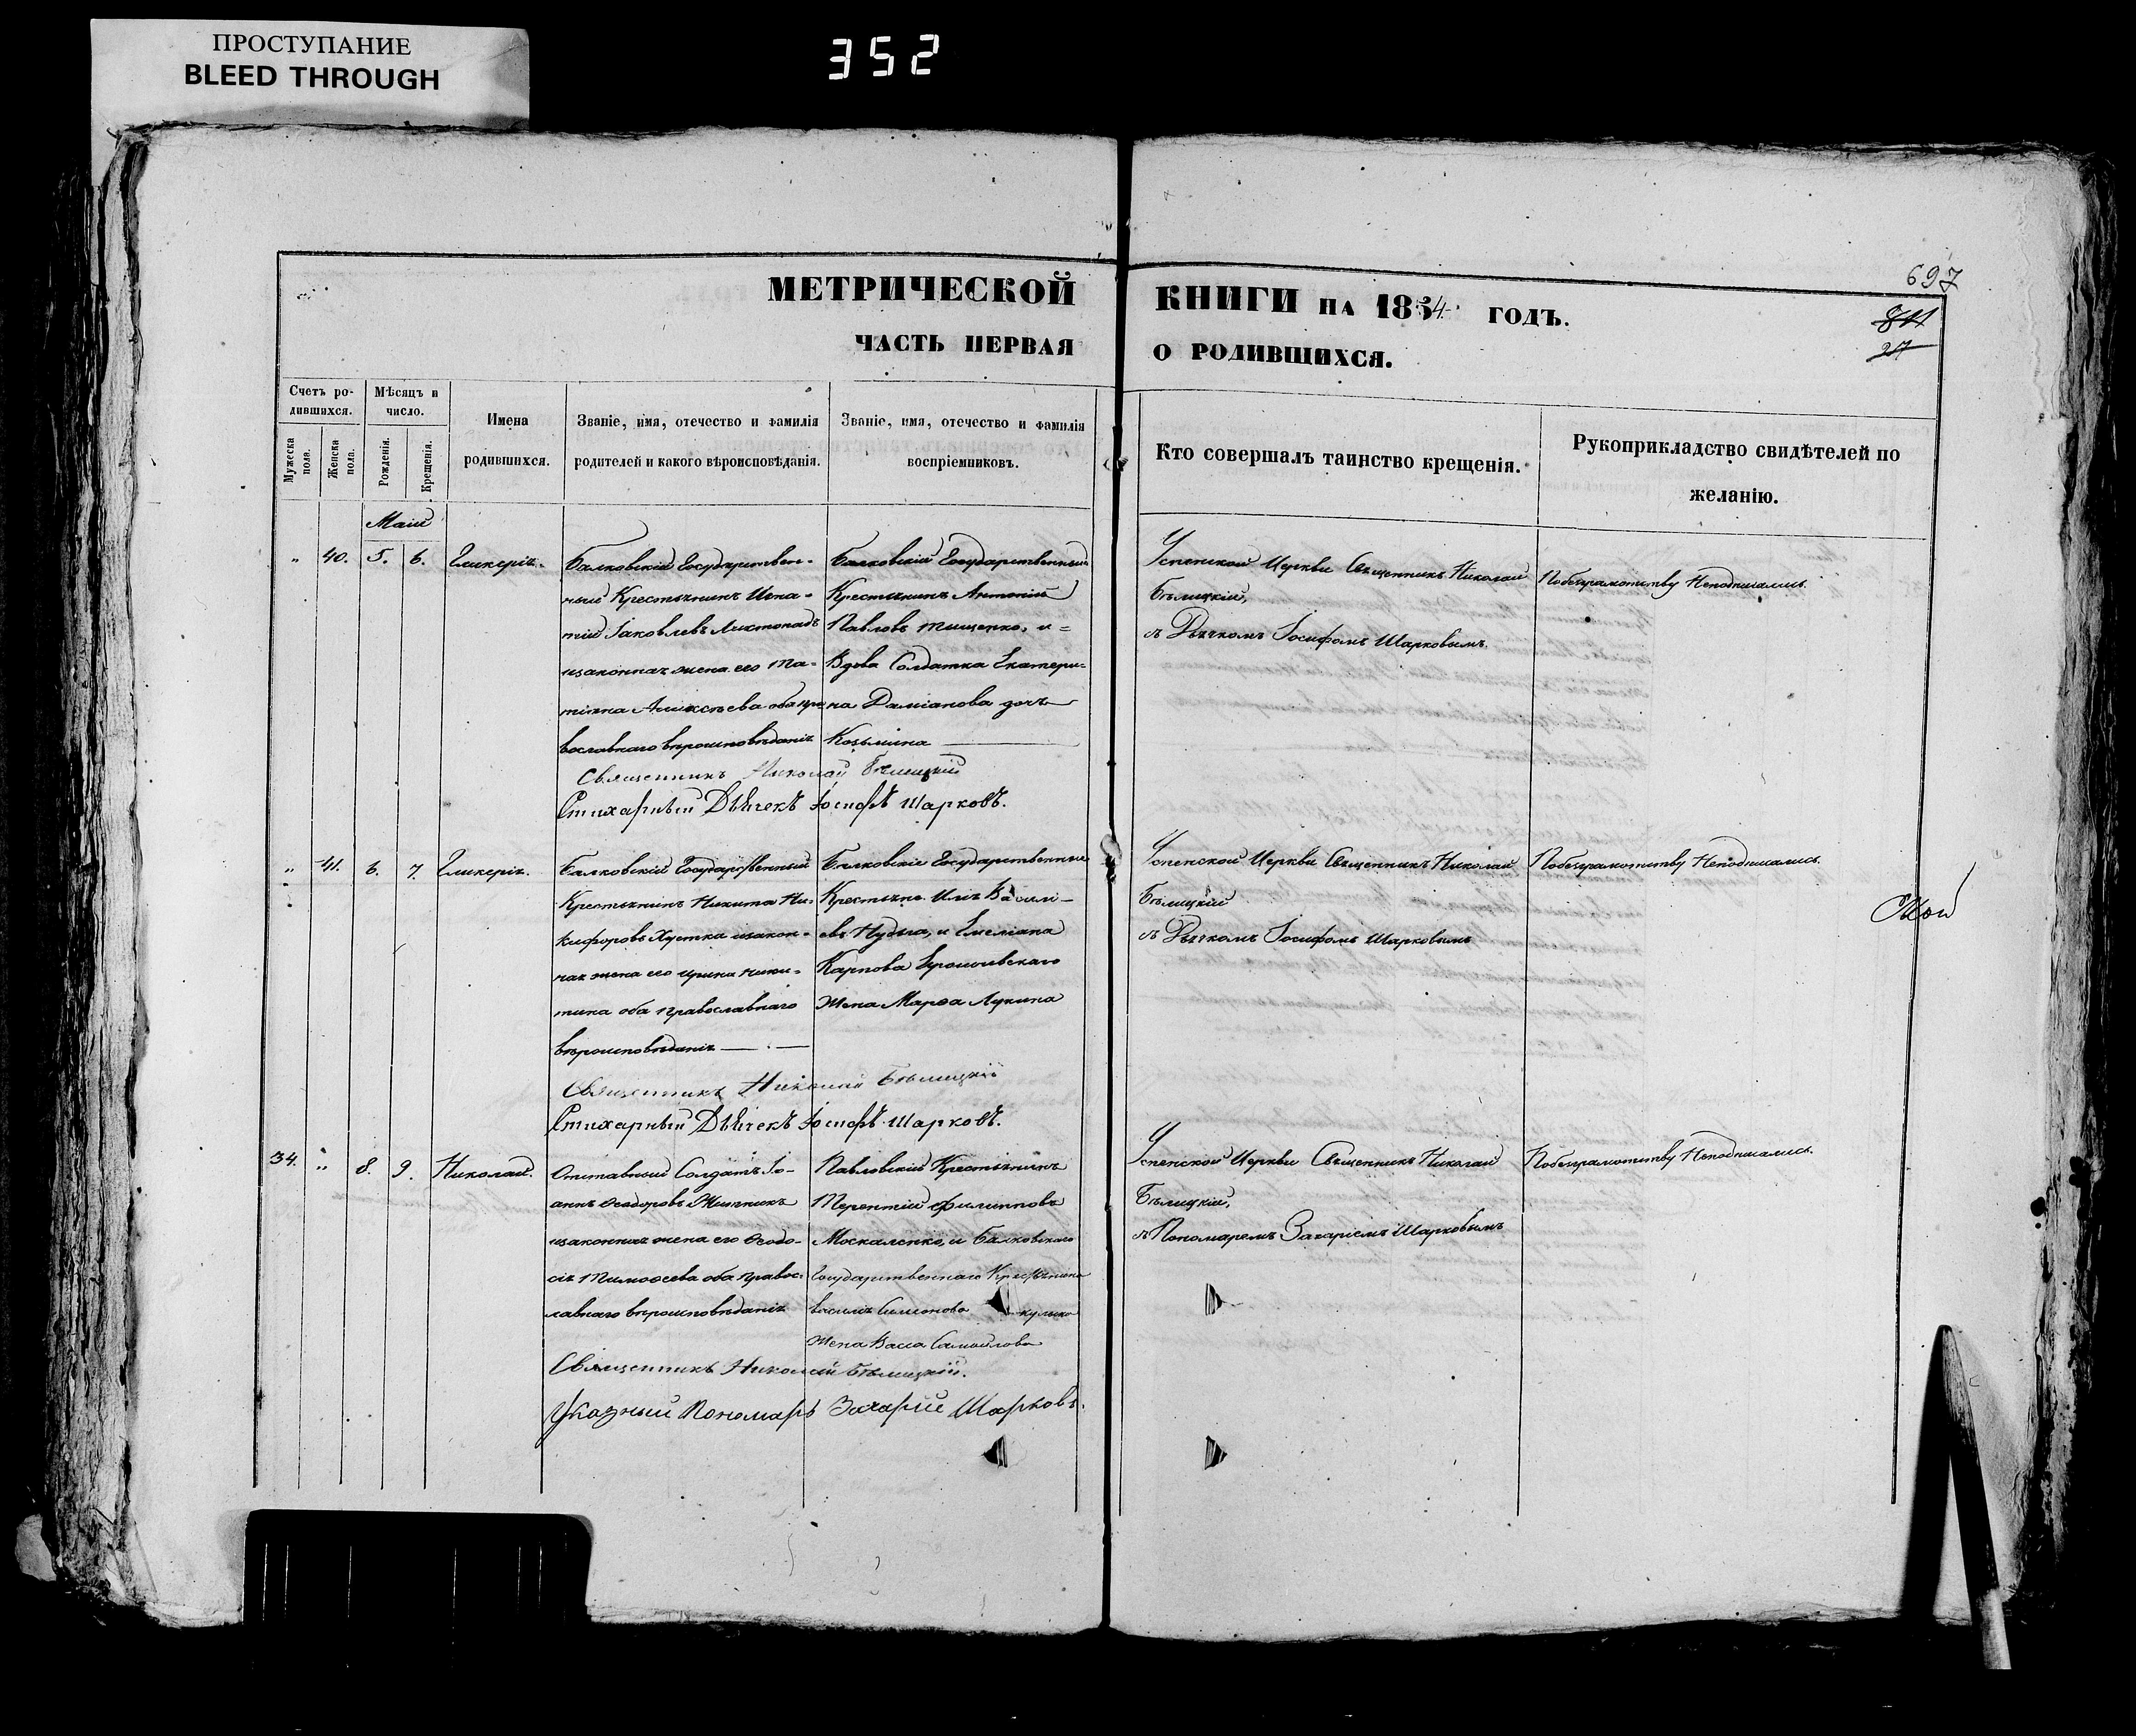 ПРОСТУПАНИЕ
BLEED THROUGH
352
697
МЕТРИЧЕСКОЙ КНИГИ НА 1854 ГОДЪ.
ЧАСТЬ ПЕРВАЯ О РОДИВШИХСЯ.
27
Счетъ родившихся.
Мужеска пола.
Женска пола.
Мѣсяцъ и число.
Рожденія.
Крещенія.
Имена родившихся.
Званіе, имя, отечество и фамилія родителей и какого вѣроисповѣданія.
Званіе, имя, отечество и фамилія воспріемниковъ.
Кто совершалъ таинство крещенія.
Рукоприкладство свидѣтелей по желанію.
Маій
„ 40. 5. 6. Гликерія.
Балковскій Государствен-
ный Крестьянинъ Игна-
тій Іаковлевъ Листопадъ
изаконная жена его Та-
тіяна Алексѣева оба пра
вославнаго вѣроисповѣданія
Балковскій Государственный
Крестьянинъ Антоній
Павловъ Тищенко, и=
Вдова Солдатка Екатери=
на Даміанова дочь
Козьмина
Успенской Церкви Священникъ Николай
Бѣлицкій,
съ Дьячкомъ Іосифомъ Шарковымъ.
Побезграмотству Неподписались.
Священникъ Николай Бѣлицкій
Стихарный Дьячекъ Іосифъ Шарковъ.
„ 41. 6. 7. Гликерія.
Балковскій Государственный
Крестьянинъ Никита Ни-
кифоровъ Хустка изакон-
ная жена его Ирина Ники-
тина оба православнаго
вѣроисповѣданія
Балковскіе Государственные
Крестьяне Илія Василі-
евъ Нудьга, и Емеліана
Карпова
Жена Марѳа Лукина
Успенской Церкви Священникъ Николай
Бѣлицкій
съ Дьячкомъ Іосифомъ Шарковымъ
Побезграмотству Неподписались.
Священникъ Николай Бѣлицкій
Стихарный Дьячекъ Іосифъ Шарковъ.
34. „ 8. 9. Николай.
Отставный Солдатъ Іо-
аннъ Ѳеодоровъ
изаконная жена его Ѳеодо-
сія Тимоѳеева оба правос-
лавнаго вѣроисповѣданія
Павловскій Крестьянинъ
Терентій Филипповъ
Москаленко, и Балковскаго
Государственнаго Крестьянина
Василія Симонова
Жена Васса Самойлова
Успенской Церкви Священникъ Николай
Бѣлицкій,
съ Пономаремъ Захаріемъ Шарковымъ
Побезграмотству Неподписались.
Священникъ Николай Бѣлицкій.
Указный Пономарь Захарій Шарковъ.